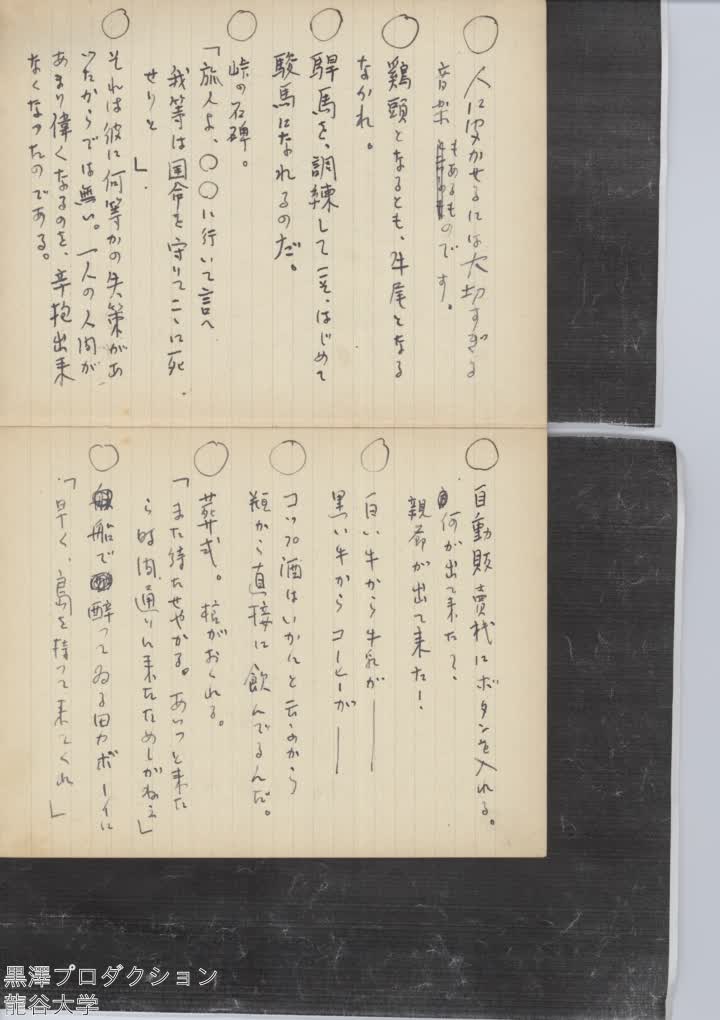 ○ 人に聞かせるには大切すぎる
音楽もあるものです。
○ 鶏頭となるとも、牛尾となる
なかれ。
○ 駻馬を、調練してこそ、はじめて
駿馬になれるのだ。
○ 峠の石碑。
「旅人よ、○○に行いて言へ
我等は国命を守りてこゝに死
せりと」.
○ それは彼に何等かの失策があ
つたからでは無い。一人の人間が
あまり偉くなるのを、辛抱出来
なくなつたのである。
○ 自動販賣機にボタンを入れる。
何が出て来た?
親爺が出て来た!
○ 白い牛から牛乳が――
黒い牛からコーヒーが――
○ コップ酒はいかんと云うから
瓶から直接に飲んでるんだ。
○ 葬式。棺がおくれる。
「また待たせやがる。あいつと来た
ら時間通りに来たためしがねえ」
○ 船で酔ってゐる田力ボーイに
「早く、島を持つて来てくれ」
黒澤プロダクション
龍谷大学